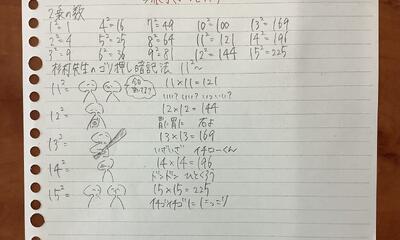 2乗の数
1²=1 4²=16 7²=49 10²=100 13²=169
2²=4 5²=25 8²=64 11²=121 14²=196
3²=9 6²=36 9²=81 12²=144 15²=225
杉村先生のゴリ押し暗記法 11²〜
11² 11×11=121
いい？いい？いいい？
12² 12×12=144
13² 13×13=169
いざいざ イチローくん
14² 14×14=196
ドンドン ひどくろう
15² 15×15=225
イチゴイチゴに にっこり